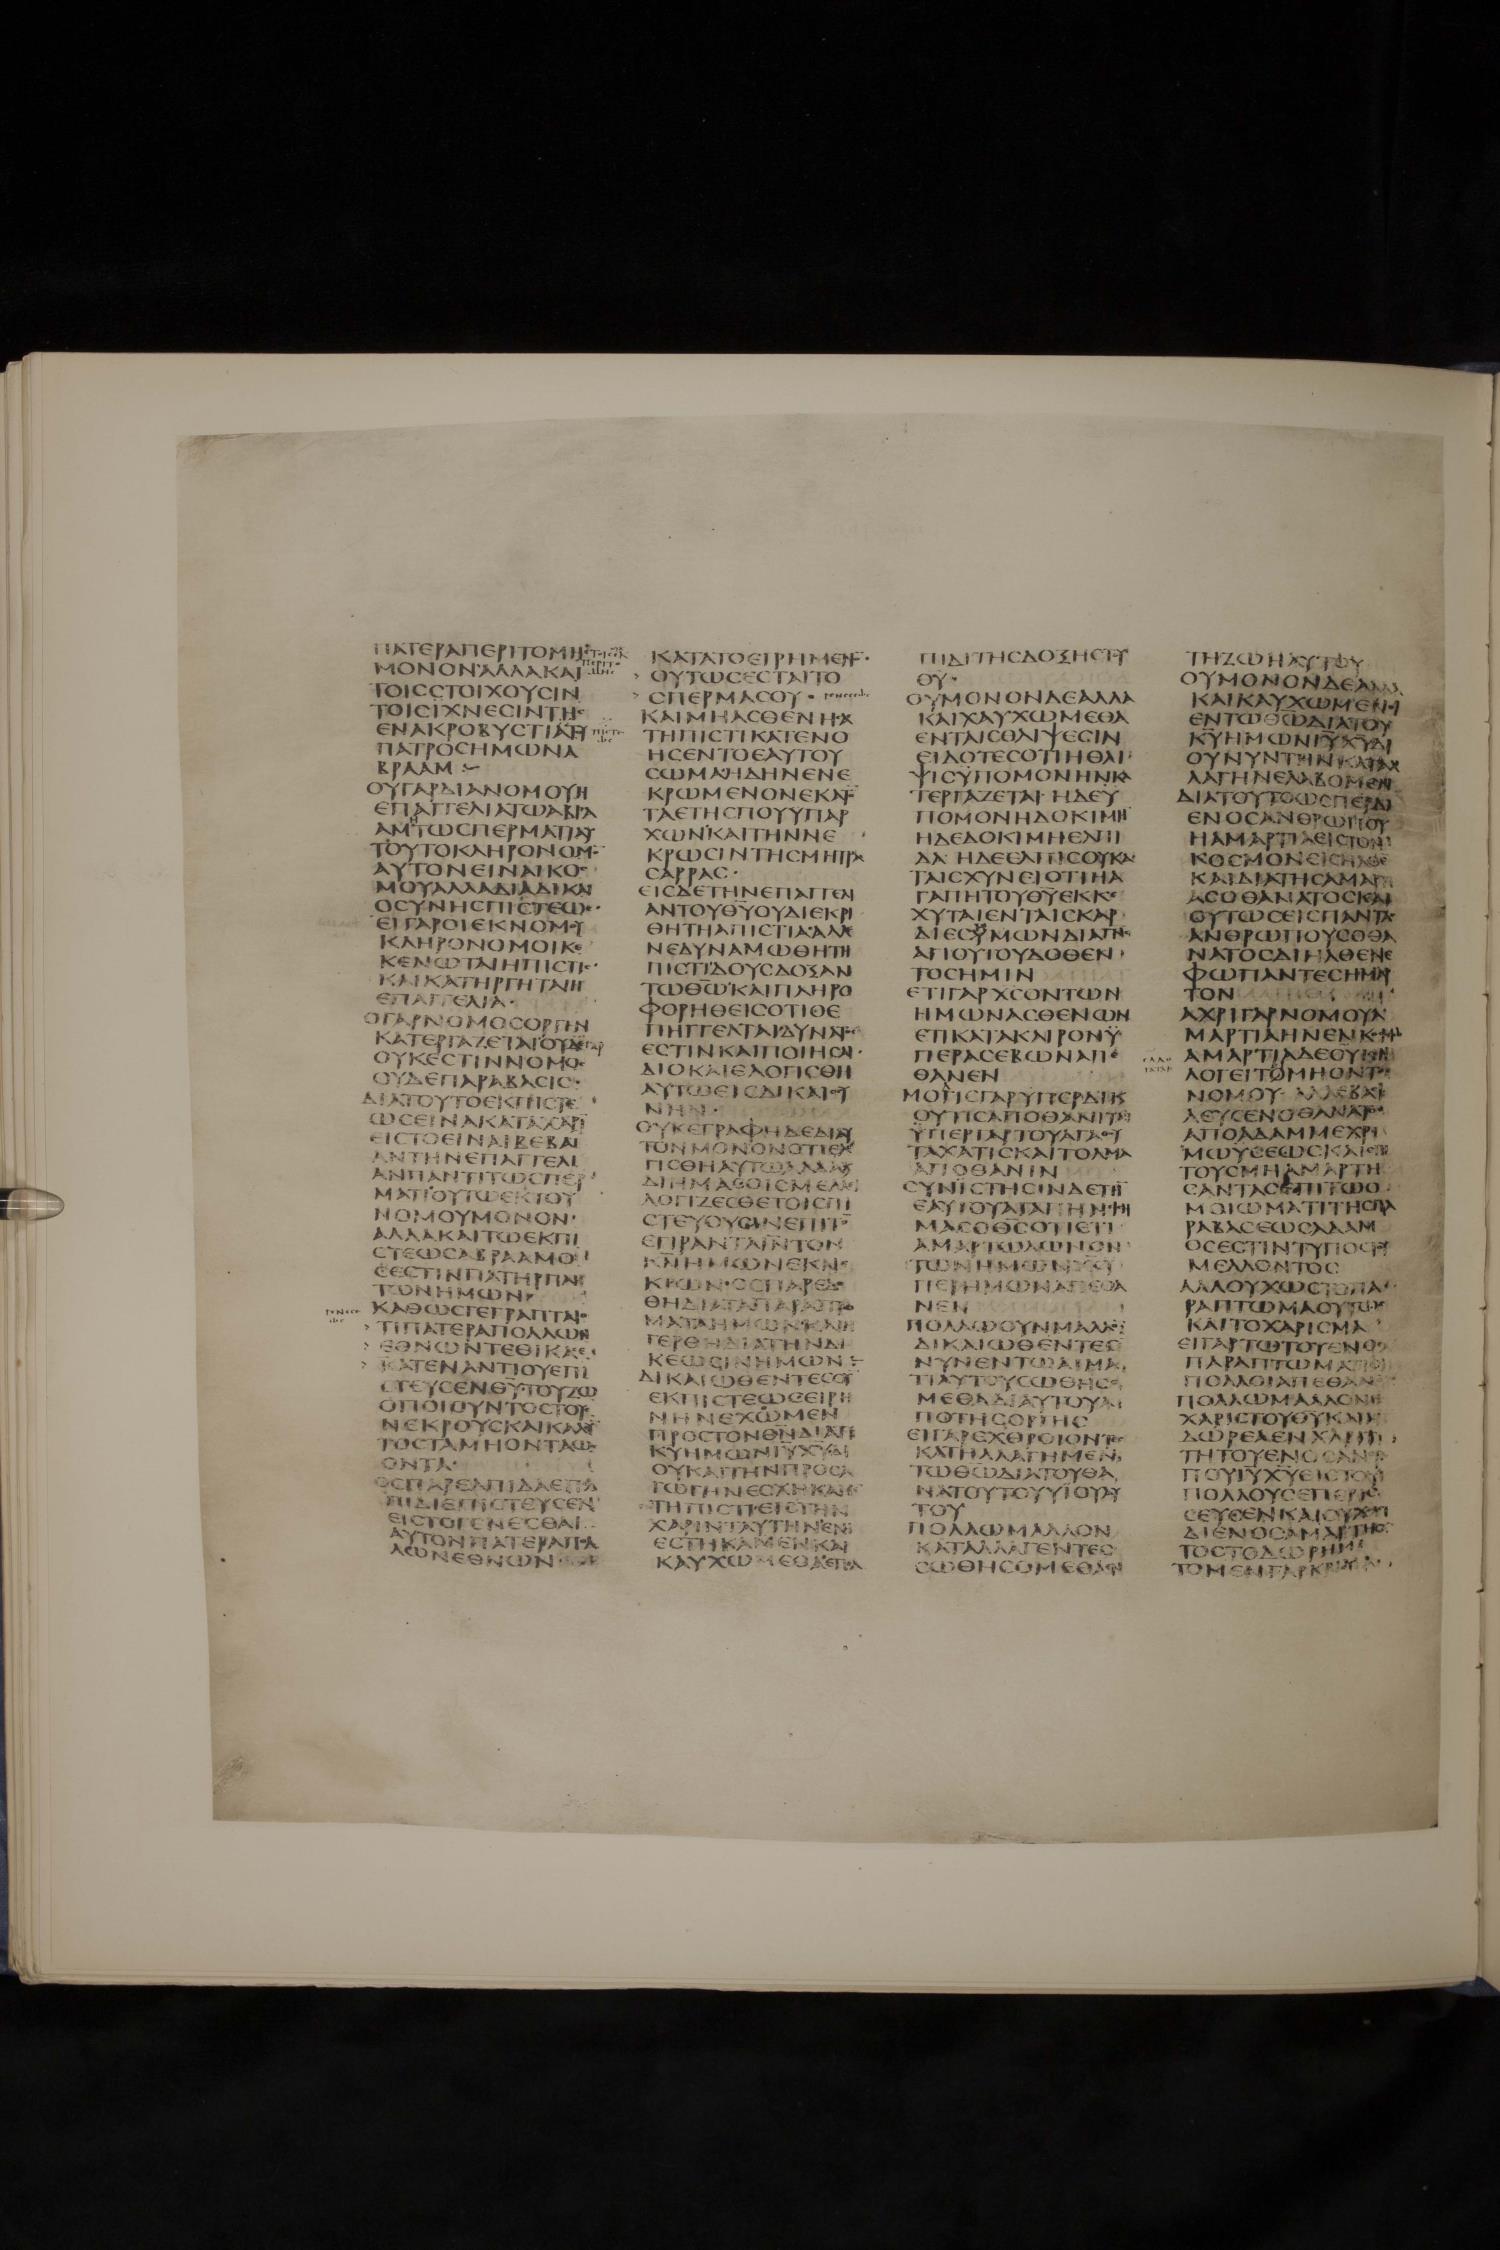 ΠΑΤΕΡΑΠΕΡΙΤΟΜΗϲ
ΜΟΝΟΝΑΛΛΑΚΑΙ
ΤΟΙϹϹΤΟΙΧΟΥϹΙΝ
ΤΟΙϹΙΧΝΕϹΙΝΤΗϲ
ΕΝΑΚΡΟΒΥϹΤΙΑ
ΠΑΤΡΟϹΗΜΩΝΑ
ΒΡΑΑΜ
ΟΥΓΑΡΔΙΑΝΟΜΟΥΗ
ΕΠΑΓΓΕΛΙΑΤΩΑΒΡΑ
ΑΜΗΤΩϹΠΕΡΜΑΤΙΑΥ
ΤΟΥΤΟΚΛΗΡΟΝΟΜΟ̅
ΑΥΤΟΝΕΙΝΑΙΚΟϹ
ΜΟΥΑΛΛΑΔΙΑΔΙΚΑΙ
ΟϹΥΝΗϹΠΙϹΤΕΩϹ
ΕΙΓΑΡΟΙΕΚΝΟΜΟΥ
ΚΛΗΡΟΝΟΜΟΙΚΕ
ΚΕΝΩΤΑΙΗΠΙϹΤΙϹ
ΚΑΙΚΑΤΗΡΓΗΤΑΙΗ
ΕΠΑΓΓΕΛΙΑ
ΟΓΑΡΝΟΜΟϹΟΡΓΗΝ
ΚΑΤΕΡΓΑΖΕΤΑΙΟΥ
ΟΥΚΕϹΤΙΝΝΟΜΟϹ
ΟΥΔΕΠΑΡΑΒΑϹΙϹ
ΔΙΑΤΟΥΤΟΕΚΠΙϹΤΕ
ΩϹΕΙΝΑΚΑΤΑΧΑΡΙ̅
ΕΙϹΤΟΕΙΝΑΙΒΕΒΑΙ
ΑΝΤΗΝΕΠΑΓΓΕΛΙ
ΑΝΠΑΝΤΙΤΩϹΠΕΡ
ΜΑΤΙΟΥΤΩΕΚΤΟΥ
ΝΟΜΟΥΜΟΝΟΝ
ΑΛΛΑΚΑΙΤΩΕΚΠΙ
ϹΤΕΩϹΑΒΡΑΑΜΟ
ϹΕϹΤΙΝΠΑΤΗΡΠΑΝ
ΤΩΝΗΜΩΝ
ΚΑΘΩϹΓΕΓΡΑΠΤΑΙΟ
> ΤΙΠΑΤΕΡΑΠΟΛΛΩΝ
> ΕΘΝΩΝΤΕΘΙΚΑϹΕ
> ΚΑΤΕΝΑΝΤΙΟΥΕΠΙ
ϹΤΕΥϹΕΝΘΥ̅ΤΟΥΖΩ
ΟΠΟΙΟΥΝΤΟϹΤΟΥϹ
ΝΕΚΡΟΥϹΚΑΙΚΑΛΟΥ̅
ΤΟϹΤΑΜΗΟΝΤΑΩϹ
ΟΝΤΑ
ΟϹΠΑΡΕΛΠΙΔΑΕΠΕΛ
ΠΙΔΙΕΠΙϹΤΕΥϹΕΝ
ΕΙϹΤΟΓΕΝΕϹΘΑΙ
ΑΥΤΟΝΠΑΤΕΡΑΠΟΛ
ΛΩΝΕΘΝΩΝ
ΚΑΤΑΤΟΕΙΡΗΜΕΝΟ̅
> ΟΥΤΩϹΕϹΤΑΙΤΟ
> ϹΠΕΡΜΑϹΟΥ
ΚΑΙΜΗΑϹΘΕΝΗϹΑϹ
ΤΗΠΙϹΤΙΚΑΤΕΝΟ
ΗϹΕΝΤΟΕΑΥΤΟΥ
ϹΩΜΑΗΔΗΝΕΝΕ
ΚΡΩΜΕΝΟΝΕΚΑΤΟ̅
ΤΑΕΤΗϹΠΟΥΥΠΑΡ
ΧΩΝΚΑΙΤΗΝΝΕ
ΚΡΩϹΙΝΤΗϹΜΗΤΡΑϹ
ϹΑΡΡΑϹ
ΕΙϹΔΕΤΗΝΕΠΑΓΓΕΛΙ
ΑΝΤΟΥΘΥ̅ΟΥΔΙΕΚΡΙ
ΘΗΤΗΑΠΙϹΤΙΑΑΛΛΕ
ΝΕΔΥΝΑΜΩΘΗΤΗ
ΠΙϹΤΙΔΟΥϹΔΟΞΑΝ
ΤΩΘΩ̅ΚΑΙΠΛΗΡΟ
ΦΟΡΗΘΕΙϹΟΤΙΘΕ
ΠΗΓΓΕΛΤΑΙΔΥΝΑΤΟϹ
ΕϹΤΙΝΚΑΙΠΟΙΗϹΑΙ
ΔΙΟΚΑΙΕΛΟΓΙϹΘΗ
ΑΥΤΩΕΙϹΔΙΚΑΙΟϹΥ
ΝΗΝ
ΟΥΚΕΓΡΑΦΗΔΕΔΙΑΥ
ΤΟΝΜΟΝΟΝΟΤΙΕΛΟ
ΓΙϹΘΗΑΥΤΩΑΛΛΑΚΑΙ
ΔΙΗΜΑϹΟΙϹΜΕΛΛΕΙ
ΛΟΓΙΖΕϹΘΕΤΟΙϹΠΙ
ϹΤΕΥΟΥϹΙΝΕΠΙΤΟ̅
ΕΓΙΡΑΝΤΑΙΝ̅ΤΟΝ
ΚΝ̅ΗΜΩΝΕΚΝΕ
ΚΡΩΝΟϹΠΑΡΕΔΟ
ΘΗΔΙΑΤΑΠΑΡΑΠΤΩ
ΜΑΤΑΗΜΩΝΚΑΙΗ
ΓΕΡΘΗΔΙΑΤΗΝΔΙ
ΚΕΩϹΙΝΗΜΩΝ
ΔΙΚΑΙΩΘΕΝΤΕϹΟΥ̅
ΕΚΠΙϹΤΕΩϹΕΙΡΗ
ΝΗΝΕΧΩΜΕΝ
ΠΡΟϹΤΟΝΘΝ̅ΔΙΑΤΟΥ
ΚΥ̅ΗΜΩΝΙΥ̅ΧΥ̅ΔΙ
ΟΥΚΑΙΤΗΝΠΡΟϹΑ
ΓΩΓΗΝΕϹΧΗΚΑΜΕ̅
ΤΗΠΙϹΤΙΕΙϹΤΗΝ
ΧΑΡΙΝΤΑΥΤΗΝΕΝΗ
ΕϹΤΗΚΑΜΕΝΚΑΙ
ΚΑΥΧΩΜΕΘΑΕΠΕΛ
ΠΙΔΙΤΗϹΔΟΞΗϹΤΟΥ
ΘΥ̅
ΟΥΜΟΝΟΝΔΕΑΛΛΑ
ΚΑΙΚΑΥΧΩΜΕΘΑ
ΕΝΤΑΙϹΘΛΙΨΕϹΙΝ
ΕΙΔΟΤΕϹΟΤΙΗΘΛΙ
ΨΙϹΥΠΟΜΟΝΗΝΚΑ
ΤΕΡΓΑΖΕΤΑΙΗΔΕΥ
ΠΟΜΟΝΗΔΟΚΙΜΗ̅
ΗΔΕΔΟΚΙΜΗΕΛΠΙ
ΔΑΗΔΕΕΛΠΙϹΟΥΚΑ
ΤΑΙϹΧΥΝΕΙΟΤΙΗΑ
ΓΑΠΗΤΟΥΘΥ̅ΕΚΚΕ
ΧΥΤΑΙΕΝΤΑΙϹΚΑΡ
ΔΙΕϹΥΜΩΝΔΙΑΠΝϹ
ΑΓΙΟΥΤΟΥΔΟΘΕΝ
ΤΟϹΗΜΙΝ
ΕΤΙΓΑΡΧϹΟΝΤΩΝ
ΗΜΩΝΑϹΘΕΝΩΝ
ΕΤΙΚΑΤΑΚΑΙΡΟΝΥ
ΠΕΡΑϹΕΒΩΝΑΠΕ
ΘΑΝΕΝ
ΜΟΓΙϹΓΑΡΥΠΕΡΔΙΚΑΙ
ΟΥΤΙϹΑΠΟΘΑΝΙΤΑΙ
ΥΠΕΡΓΑΡΤΟΥΑΓΑΘΟΥ
ΤΑΧΑΤΙϹΚΑΙΤΟΛΜΑ
ΑΠΟΘΑΝΙΝ
ϹΥΝΙϹΤΗϹΙΝΔΕΤΗ̅
ΕΑΥΤΟΥΑΓΑΠΗΝΕΙϹΗ
ΜΑϹΟΘϹ̅ΟΤΙΕΤΙ
ΑΜΑΡΤΩΛΩΝΟΝ
ΤΩΝΗΜΩΝΧϹ̅Υ
ΠΕΡΗΜΩΝΑΠΕΘΑ
ΝΕΝ
ΠΟΛΛΩΟΥΝΜΑΛΛΟ̅
ΔΙΚΑΙΩΘΕΝΤΕϹ
ΝΥΝΕΝΤΩΑΙΜΑ
ΤΙΑΥΤΟΥϹΩΘΗϹΟ
ΜΕΘΑΔΙΑΥΤΟΥΑ
ΠΟΤΗϹΟΡΓΗϹ
ΕΙΓΑΡΕΧΘΡΟΙΟΝΤΕϹ
ΚΑΤΗΛΛΑΓΗΜΕΝ
ΤΩΘΩ̅ΔΙΑΤΟΥΘΑ
ΝΑΤΟΥΤΟΥΥΙΟΥΑΥ
ΤΟΥ
ΠΟΛΛΩΜΑΛΛΟΝ
ΚΑΤΑΛΛΑΓΕΝΤΕϹ
ϹΩΘΗϹΟΜΕΘΑΕΝ
ΤΗΖΩΗΑΥΤΟΥ
ΟΥΜΟΝΟΝΔΕΑΛΛΑ
ΚΑΙΚΑΥΧΩΜΕΝΟΙ
ΕΝΤΩΘΩ̅ΔΙΑΤΟΥ
ΚΥ̅ΗΜΩΝΙΥ̅ΧΥ̅ΔΙ
ΟΥΝΥΝΤΗΝΚΑΤΑΛ
ΛΑΓΗΝΕΛΑΒΟΜΕΝ
ΔΙΑΤΟΥΤΟΩϹΠΕΡΔΙ
ΕΝΟϹΑΝΘΡΩΠΟΥ
ΗΑΜΑΡΤΙΑΕΙϹΤΟΝ
ΚΟϹΜΟΝΕΙϹΗΛΘΕ
ΚΑΙΔΙΑΤΗϹΑΜΑΡΤΙ
ΑϹΟΘΑΝΑΤΟϹΚΑΙ
ΟΥΤΩϹΕΙϹΠΑΝΤΑϹ
ΑΝΘΡΩΠΟΥϹΟΘΑ
ΝΑΤΟϹΔΙΗΛΘΕΝΕ
ΦΩΠΑΝΤΕϹΗΜΑΡ
ΤΟΝ
ΑΧΡΙΓΑΡΝΟΜΟΥΑ
ΜΑΡΤΙΑΗΝΕΝΚΟϹΜΩ
ΑΜΑΡΤΙΑΔΕΟΥΚΕΝ
ΛΟΓΕΙΤΟΜΗΟΝΤΟϹ
ΝΟΜΟΥΑΛΛΕΒΑϹΙ
ΛΕΥϹΕΝΟΘΑΝΑΤΟϹ
ΑΠΟΑΔΑΜΜΕΧΡΙ
ΜΩΥϹΕΩϹΚΑΙΕΠΙ
ΤΟΥϹΜΗΑΜΑΡΤΗ
ϹΑΝΤΑϹΕΠΙΤΩΟ
ΜΟΙΩΜΑΤΙΤΗϹΠΑ
ΡΑΒΑϹΕΩϹΑΔΑΜ
ΟϹΕϹΤΙΝΤΥΠΟϹΤΟΥ
ΜΕΛΛΟΝΤΟϹ
ΑΛΛΟΥΧΩϹΤΟΠΑ
ΡΑΠΤΩΜΑΟΥΤΩϹ
ΚΑΙΤΟΧΑΡΙϹΜΑ
ΕΙΓΑΡΤΩΤΟΥΕΝΟϹ
ΠΑΡΑΠΤΩΜΑΤΙΟΙ
ΠΟΛΛΟΙΑΠΕΘΑΝΟ̅
ΠΟΛΛΩΜΑΛΛΟΝΗ
ΧΑΡΙϹΤΟΥΘΥ̅ΚΑΙΗ
ΔΩΡΕΑΕΝΧΑΡΙΤΙ
ΤΗΤΟΥΕΝΟϹΑΝΘΡΩ
ΠΟΥΙΥ̅ΧΥ̅ΕΙϹΤΟΥϹ
ΠΟΛΛΟΥϹΕΠΕΡΙϹ
ϹΕΥϹΕΝΚΑΙΟΥΧΩϹ
ΔΙΕΝΟϹΑΜΑΡΤΗϹΑ̅
ΤΟϹΤΟΔΩΡΗΜΑ
ΤΟΜΕΝΓΑΡΚΡΙΜΑ